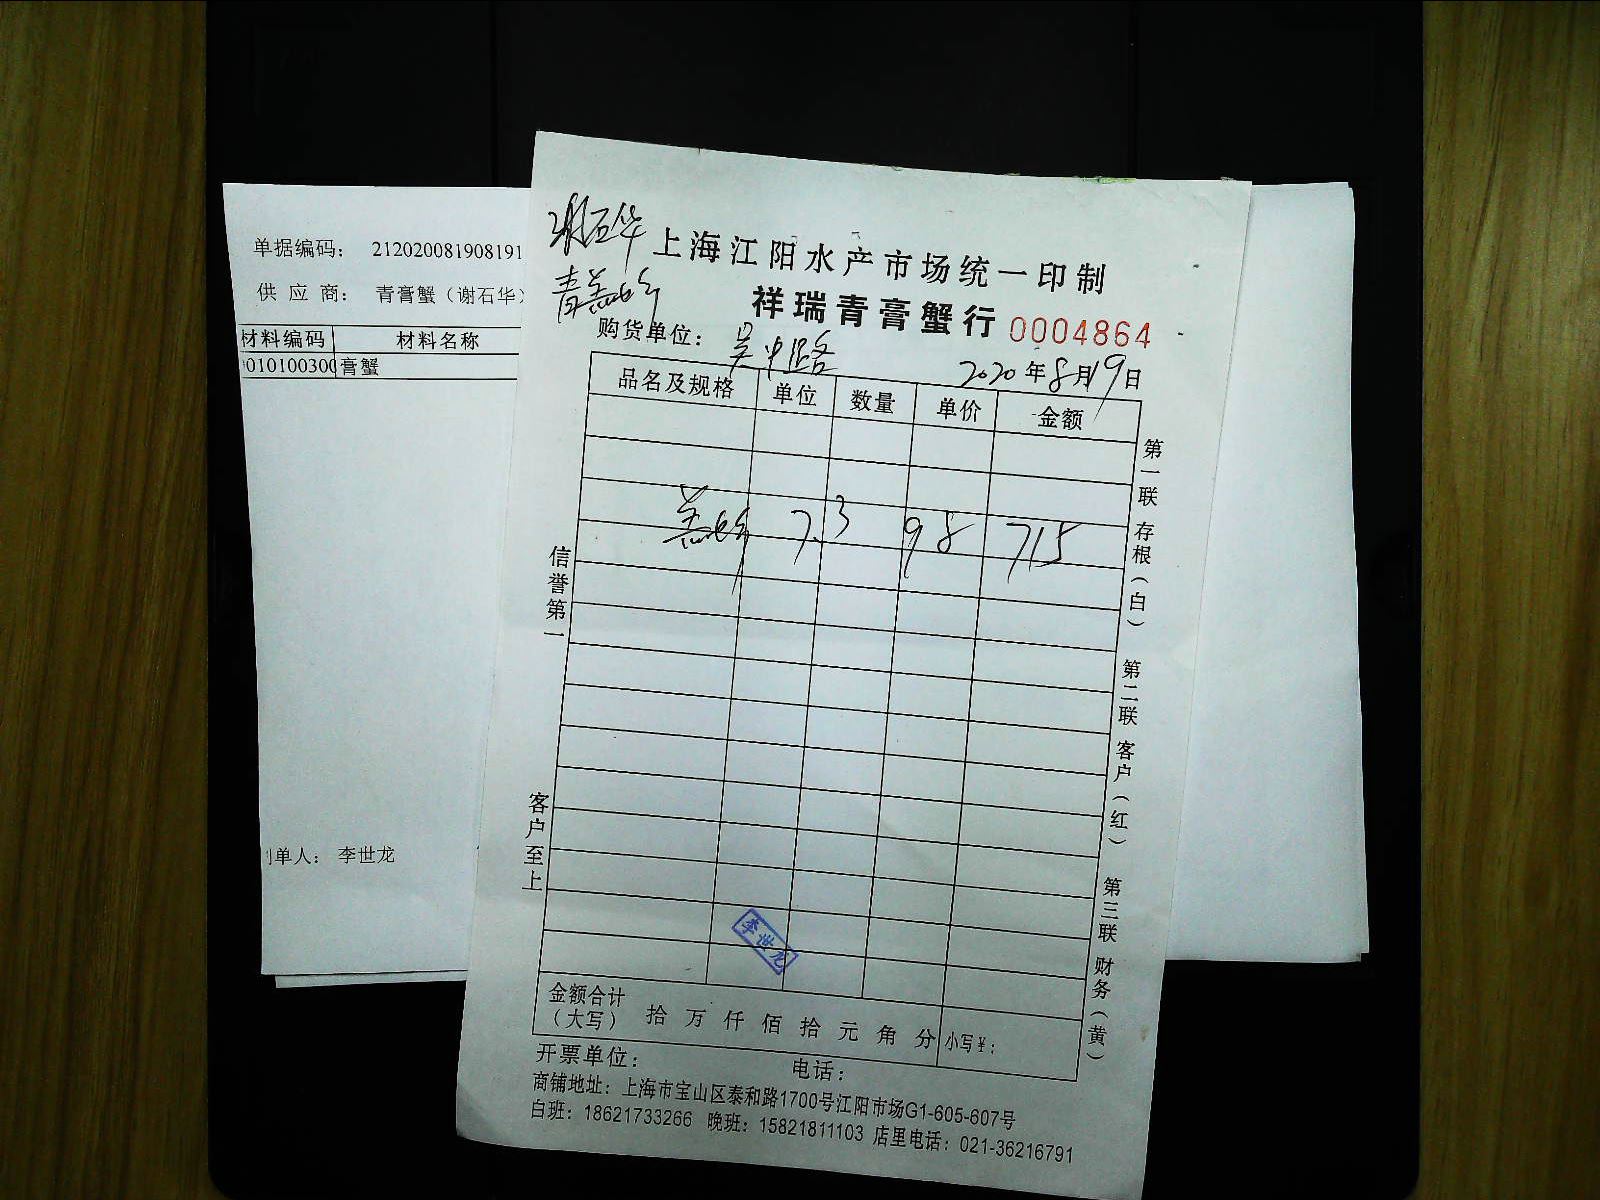 单据编码： 212020081908191
供 应 商： 青膏蟹（谢石华）
材料编码 材料名称
010100300 膏蟹
制单人： 李世龙
谢石华
青膏蟹
上海江阳水产市场统一印制
祥瑞青膏蟹行 0004864
购货单位： 吴中路
2020年8月19日
品名及规格 单位 数量 单价 金额
膏蟹 7.3 98 715
信誉第一
客户至上
第一联 存根（白）
第二联 客户（红）
第三联 财务（黄）
李世龙
金额合计（大写） 拾 万 仟 佰 拾 元 角 分 小写￥：
开票单位： 电话：
商铺地址：上海市宝山区泰和路1700号江阳市场G1-605-607号
白班：18621733266 晚班：15821811103 店里电话：021-36216791